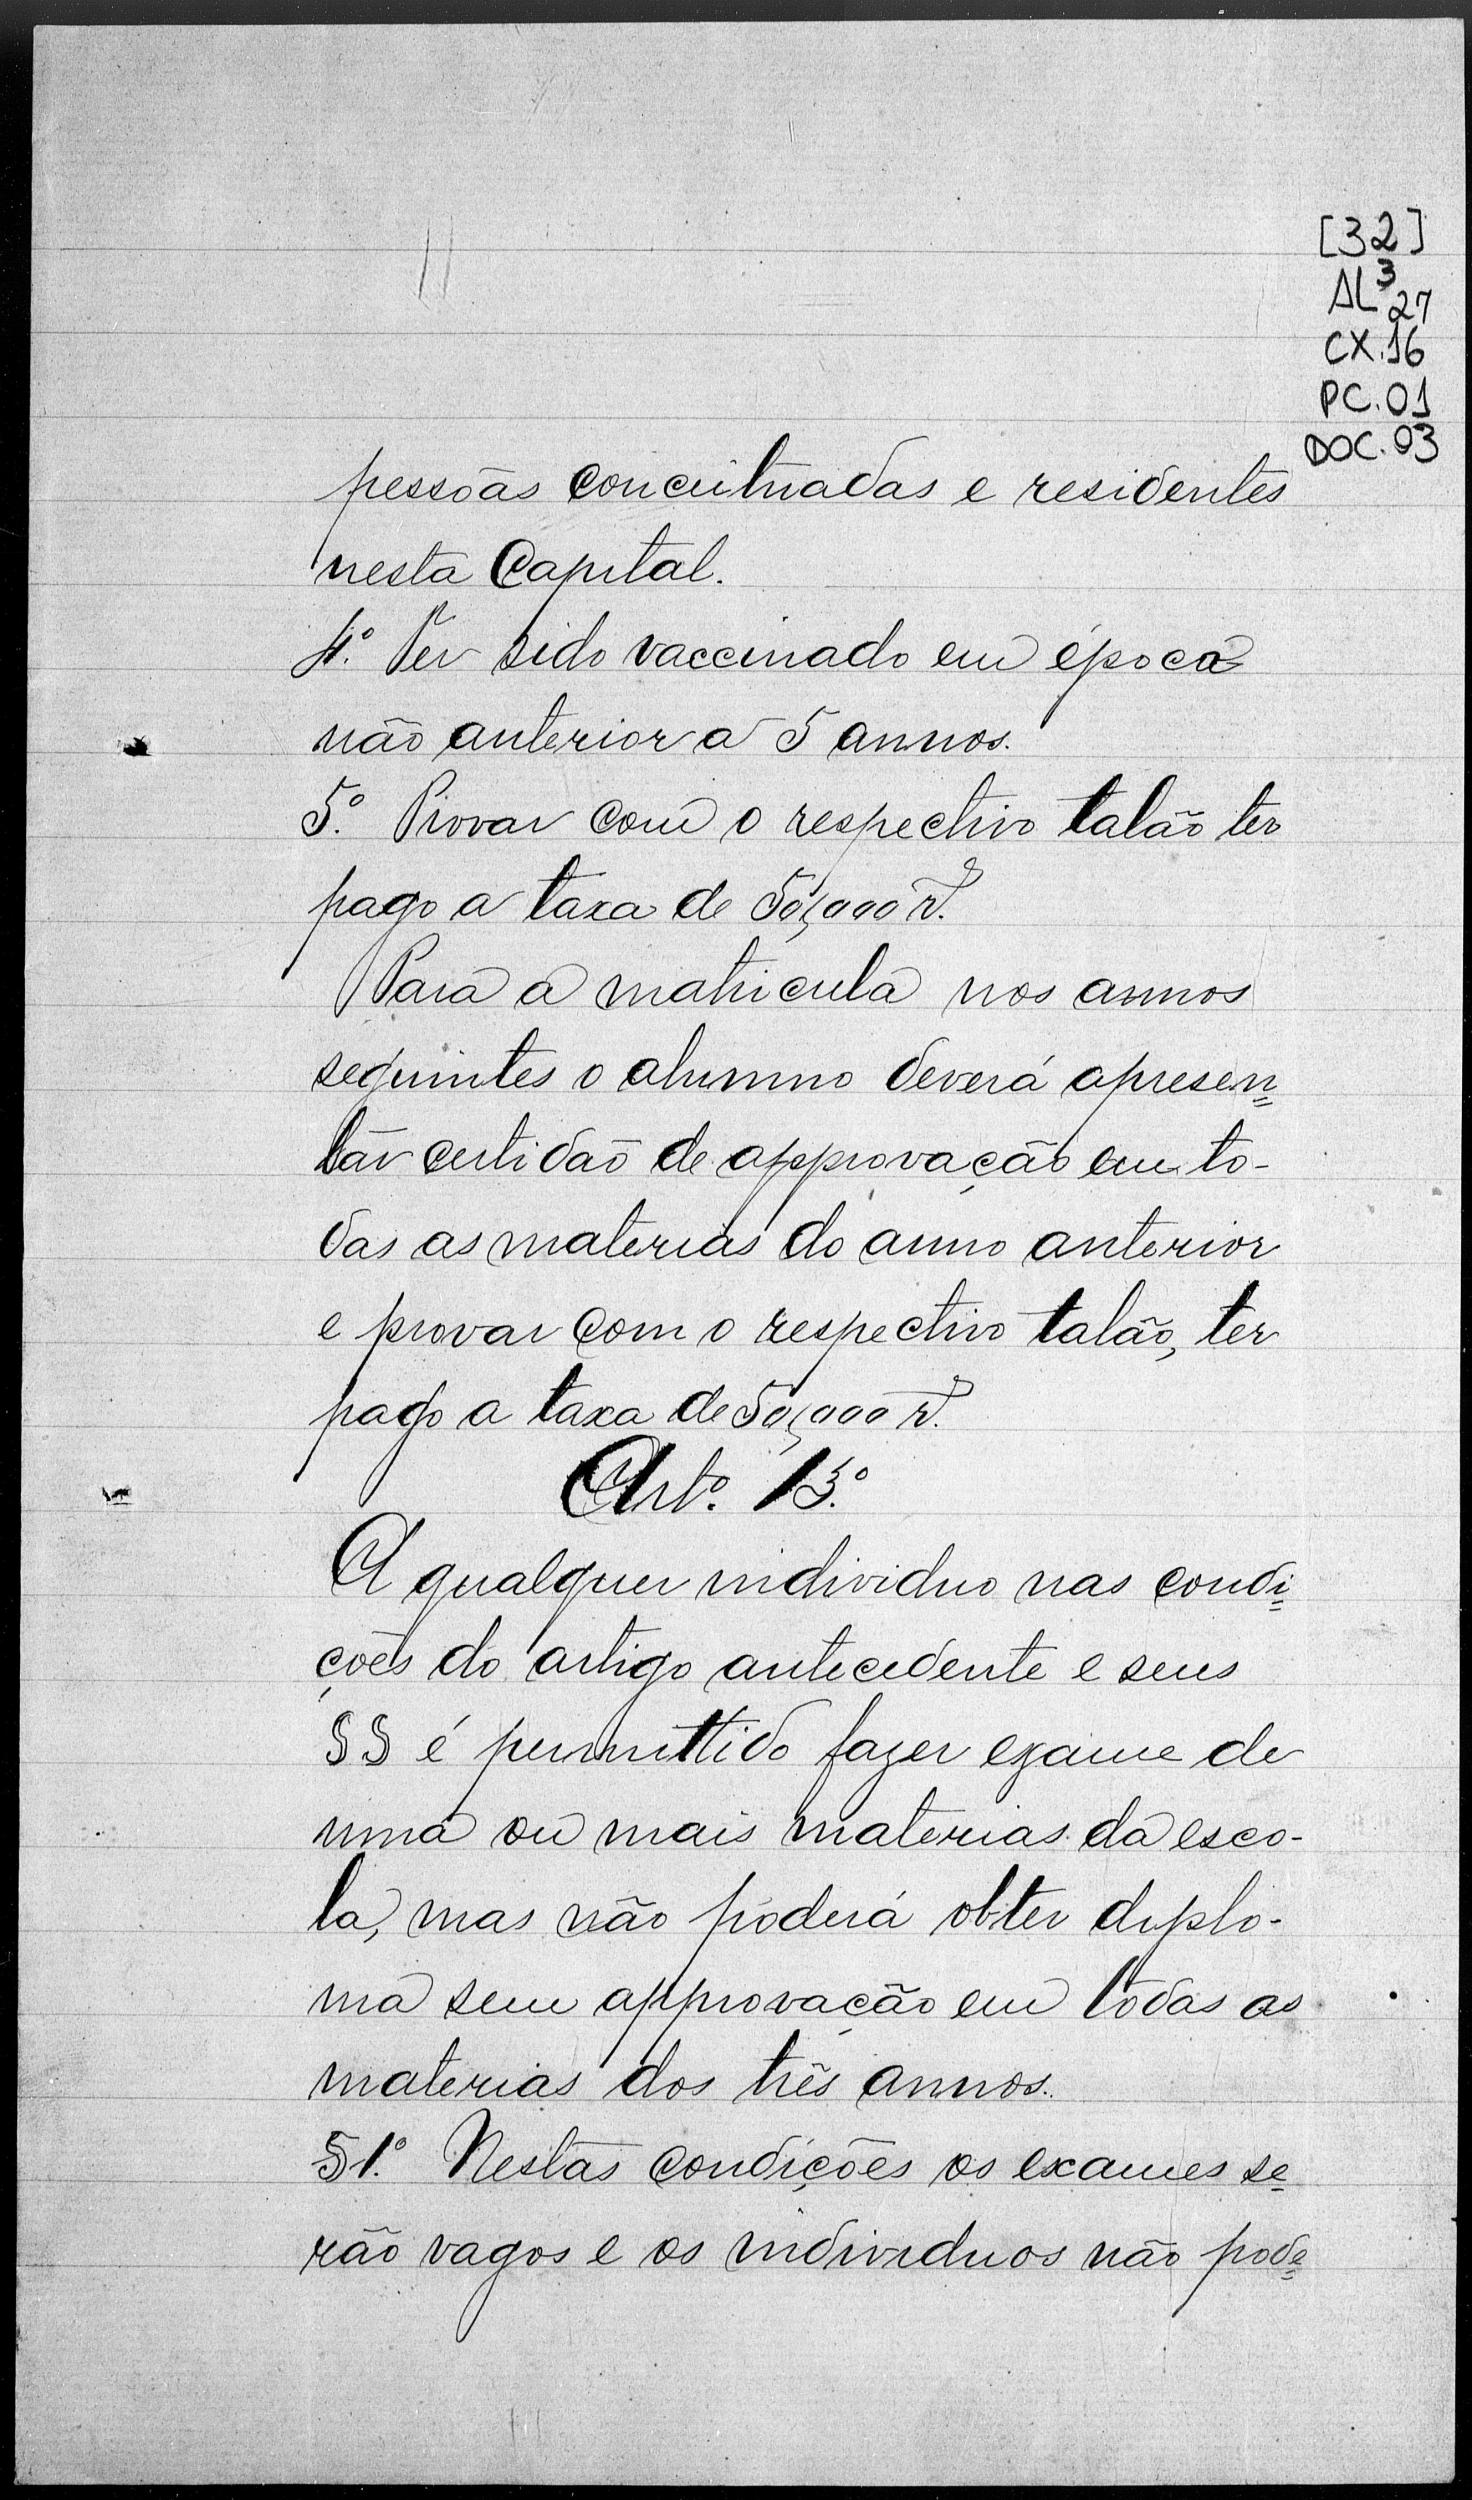 11
[32]
AL3
27
CX.16
PC.01
DOC.03
pessoas conceituadas e residentes
nesta Capital.
4.º Ter sido vaccinado em época
não anterior a 5 annos.
5.º Provar com o respectivo talão ter
pago a taxa de 50,000 rs.
Para a matricula nos annos
seguintes o alumno deverá apresen=
tar certidão de approvação em to-
das as materias do anno anterior
e provar com o respectivo talão, ter
pago a taxa de 50,000 rs.
Artº. 13.º
A qualquer individuo nas condi=
ções do artigo antecedente e seus
§§ é permittido fazer exame de
uma ou mais materias da esco-
la, mas não poderá obter diplo-
ma sem approvação em todas as
materias dos três annos.
§1.º Nestas condições os exames se=
rão vagos e os individuos não pode=